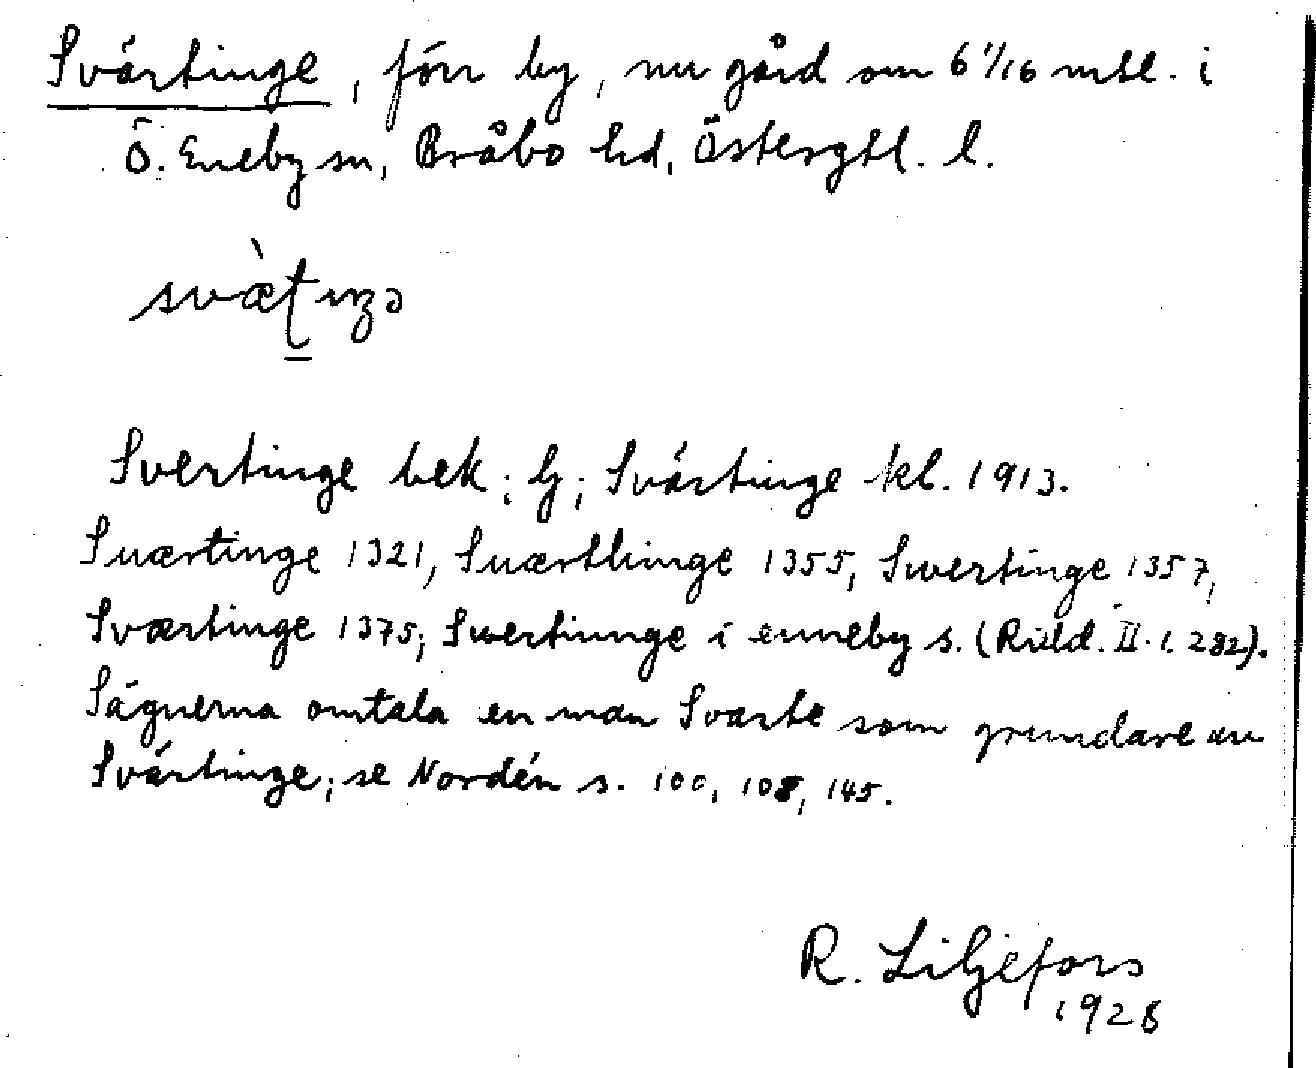 Svärtinge, förr by, nu gård om 6 1/16 mtl. i
Ö. Eneby sn, Bråbo hd, Östergtl. l.
svæ̀ʈıŋə
Svertinge bek; lj; Svärtinge kl. 1913.
Suærtinge 1321, Suærthinge 1355, Swertinge 1357,
Sværtinge 1375; Swertiunge i enneby s. (Rääd. II. 1. 282).
Sägnerna omtala en man Svarte som grundare av
Svärtinge; se Nordén s. 100, 108, 145.
R. Liljefors
1928